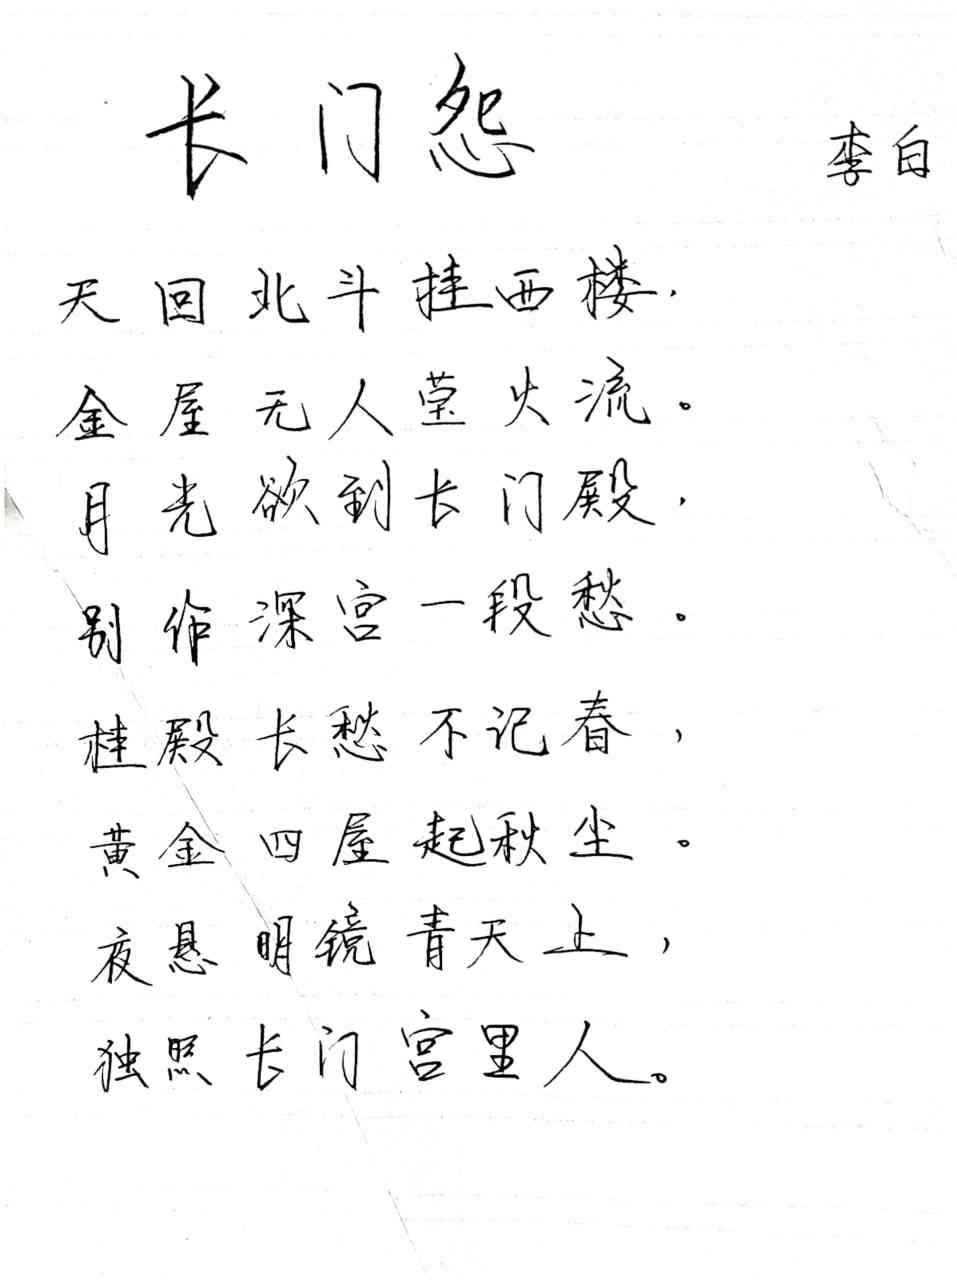 长门怨
李白
天回北斗挂西楼，
金屋无人莹火流。
月光欲到长门殿，
别作深宫一段愁。
桂殿长愁不记春，
黄金四屋起秋尘。
夜悬明镜青天上，
独照长门宫里人。